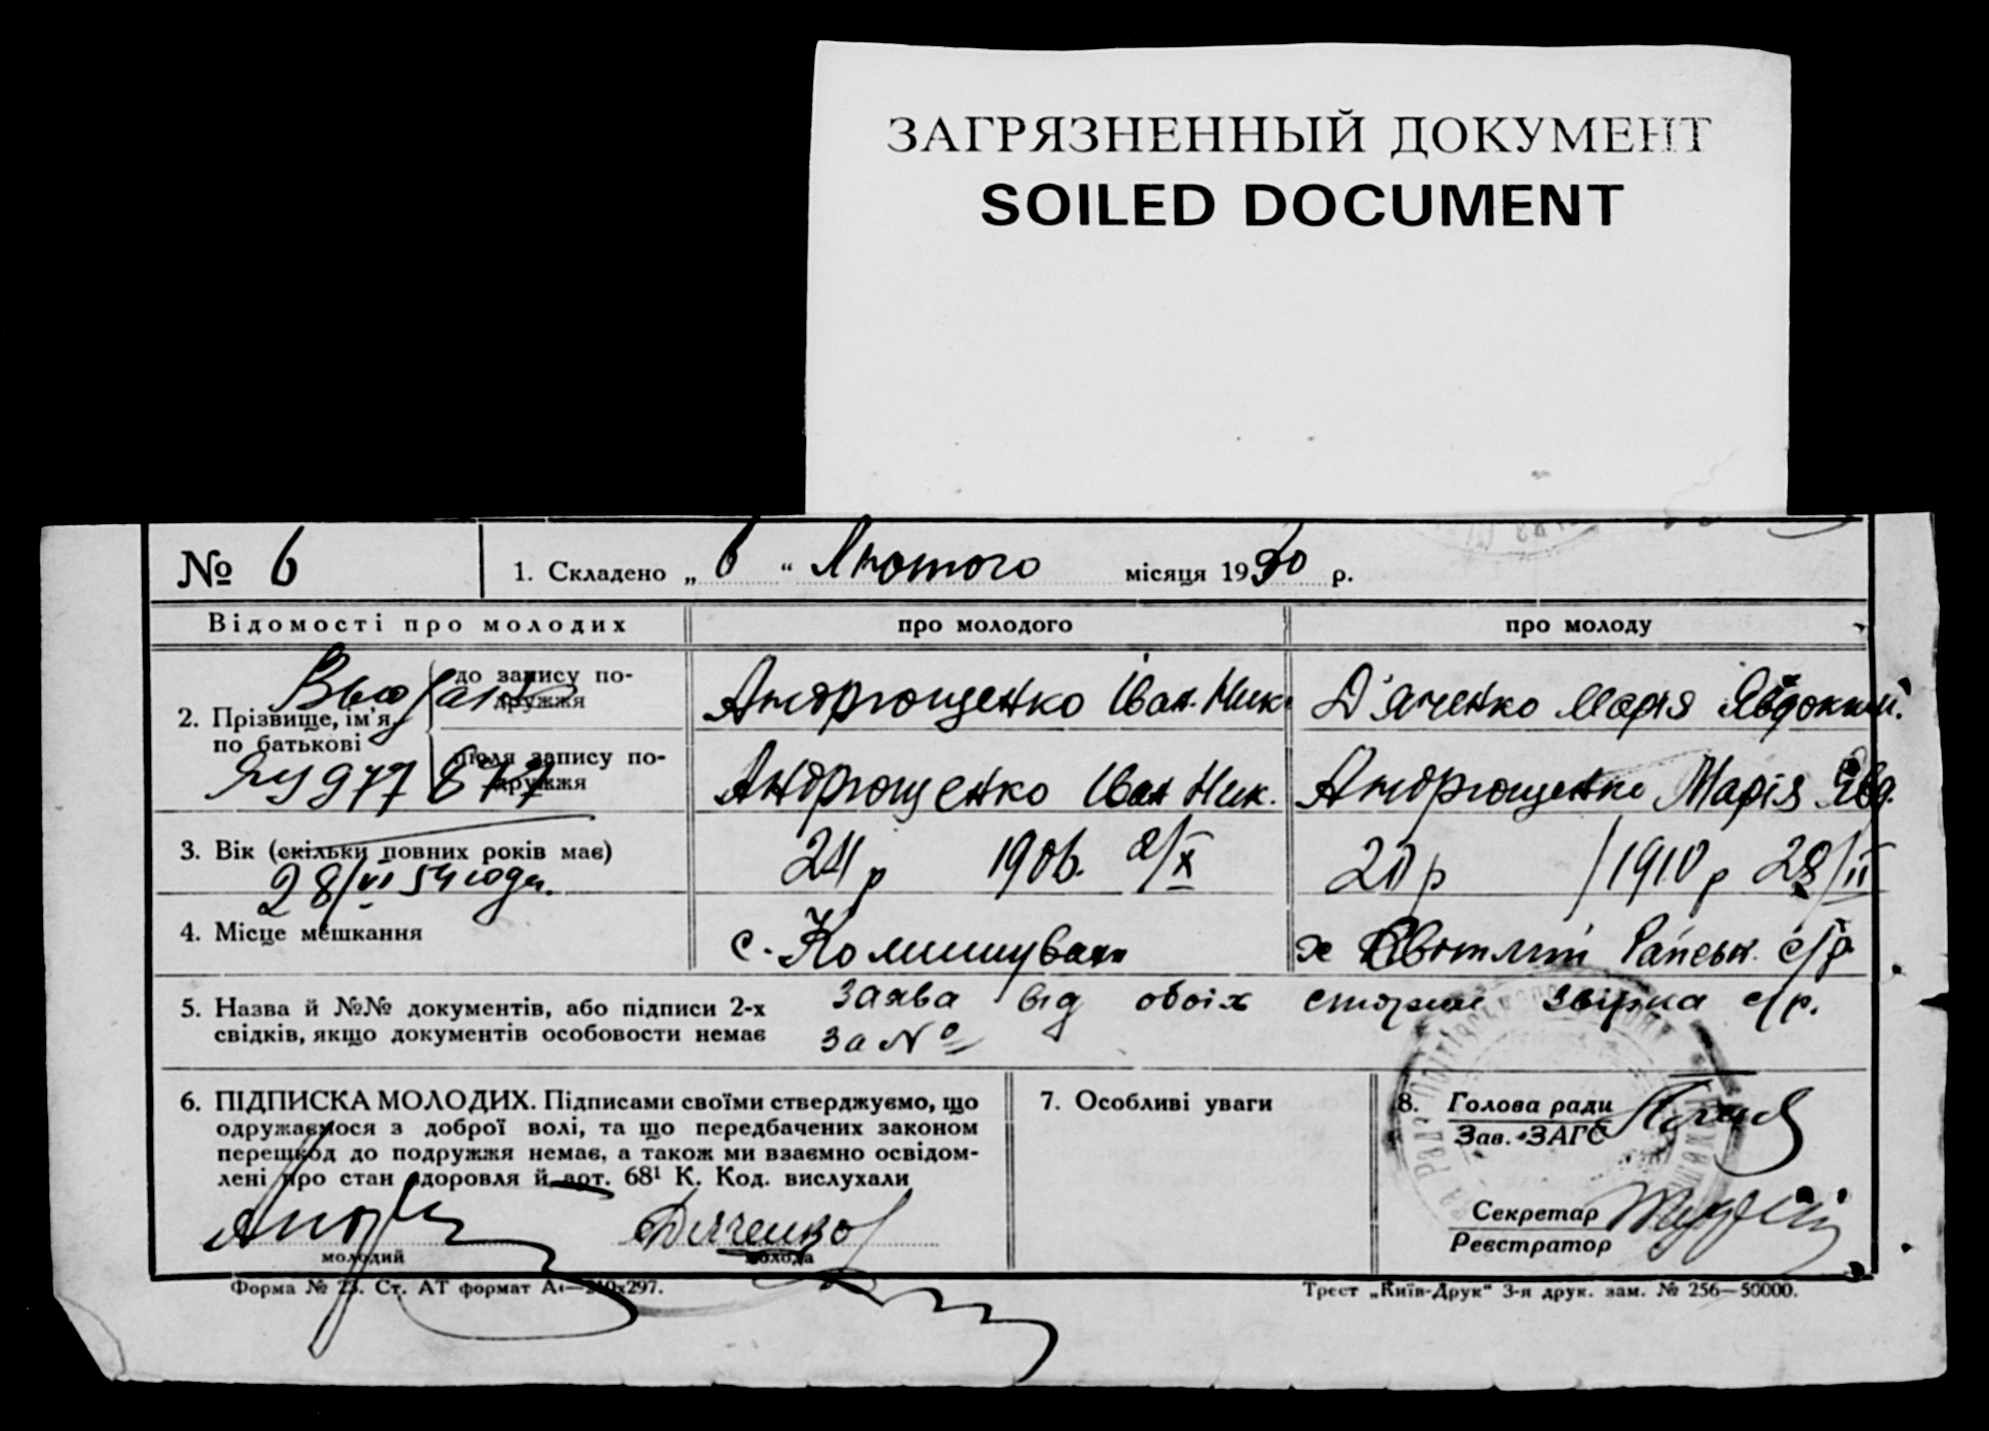 ЗАГРЯЗНЕННЫЙ ДОКУМЕНТ
SOILED DOCUMENT
№ 6
1. Складено „ 6 “ Лютого місяця 1930 р.
Відомості про молодих
про молодого
про молоду
2. Прізвище, ім'я, по батькові
до запису подружжя
Андрющенко Іван Ник.
Д'яченко Марія Явдоким.
після запису подружжя
Андрющенко Іван Ник.
Андрющенко Марія Явд.
3. Вік (скільки повних років має)
24 р 1906. 2/X
20 р / 1910 р 28/II
28/VI 54 года.
4. Місце мешкання
с. Комишуваха
х Світлий Райськ. с/р
5. Назва й №№ документів, або підписи 2-х
свідків, якщо документів особовости немає
заява від обоіх сторін звірка с/р.
за №
6. ПІДПИСКА МОЛОДИХ. Підписами своїми стверджуємо, що
одружаємося з доброї волі, та що передбачених законом
перешкод до подружжя немає, а також ми взаємно освідом-
лені про стан здоровля й арт. 68¹ К. Код. вислухали
Дяченко
молодий
молода
7. Особливі уваги
8. Голова ради
Зав. ЗАГС
Секретар
Реєстратор
Форма № 23. Ст. АТ формат А4—210х297.
Трест „Київ-Друк“ 3-я друк. зам. № 256—50000.